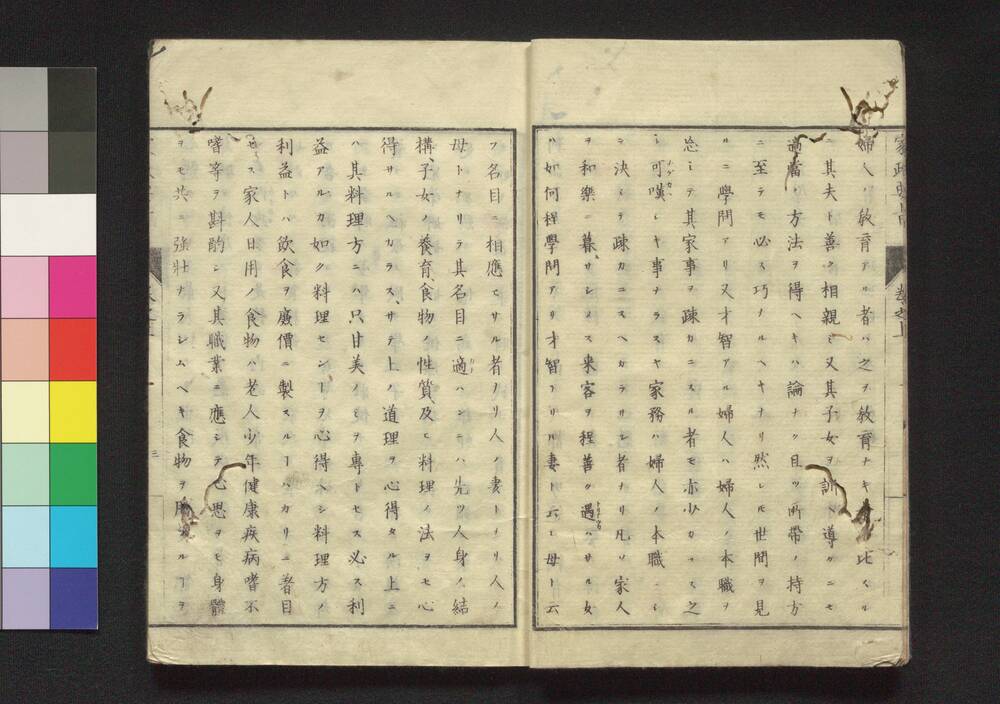 婦人ノ教育アル者ハ之ヲ教育ナキ者ニ比スル
ニ其夫ト善ク相親ミ又其子女ヲ訓ヘ導クニモ
適當ノ方法ヲ得ヘキハ論ナク且ツ所帶ノ持方
ニ至テモ必ス巧ナルヘキナリ然レ𪜈世間ヲ見
ルニ學問アリ又才智アル婦人ハ婦人ノ本職ヲ
忽ミテ其家事ヲ疎カニスル者モ亦少カラス之
レ可嘆シキ事ナラスヤ家務ハ婦人ノ本職ニシ
テ決シテ疎カニスヘカラサレ者ナリ凡ソ家人
ヲ和樂ニ暮サシメス来客ヲ程善ク遇ハサル女
ハ如何程學問アリ才智アリ𪜈妻ト云ヒ母ト云
フ名目ニ相應セサル者ナリ人ノ妻トナリ人ノ
母トナリテ其名目ニ適ハンニハ先ツ人身ノ結
構、子女ノ養育、食物ノ性質及ヒ料理ノ法ヲモ心
得サルヘカラス、サテ上ノ道理ヲ心得タル上ニ
ハ其料理方ニハ只甘美ノミヲ專トセス必ス利
益アルカ如ク料理セン𬼀ヲ心得ヘシ料理方ノ
利益トハ飲食ヲ廉價ニ製スル𬼀ハカリニ着目
セス家人日用ノ食物ハ老人少年健康疾病嗜不
嗜等ヲ斟酌シ又其職業ニ應シテ心思ヲモ身體
ヲモ共ニ強壯ナラシムヘキ食物ヲ用ユル𬼀ヲ
三